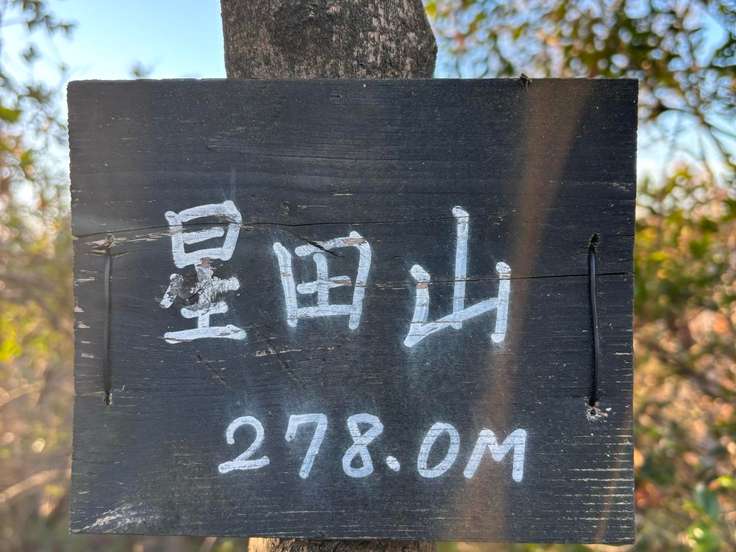 星田山
278.0M